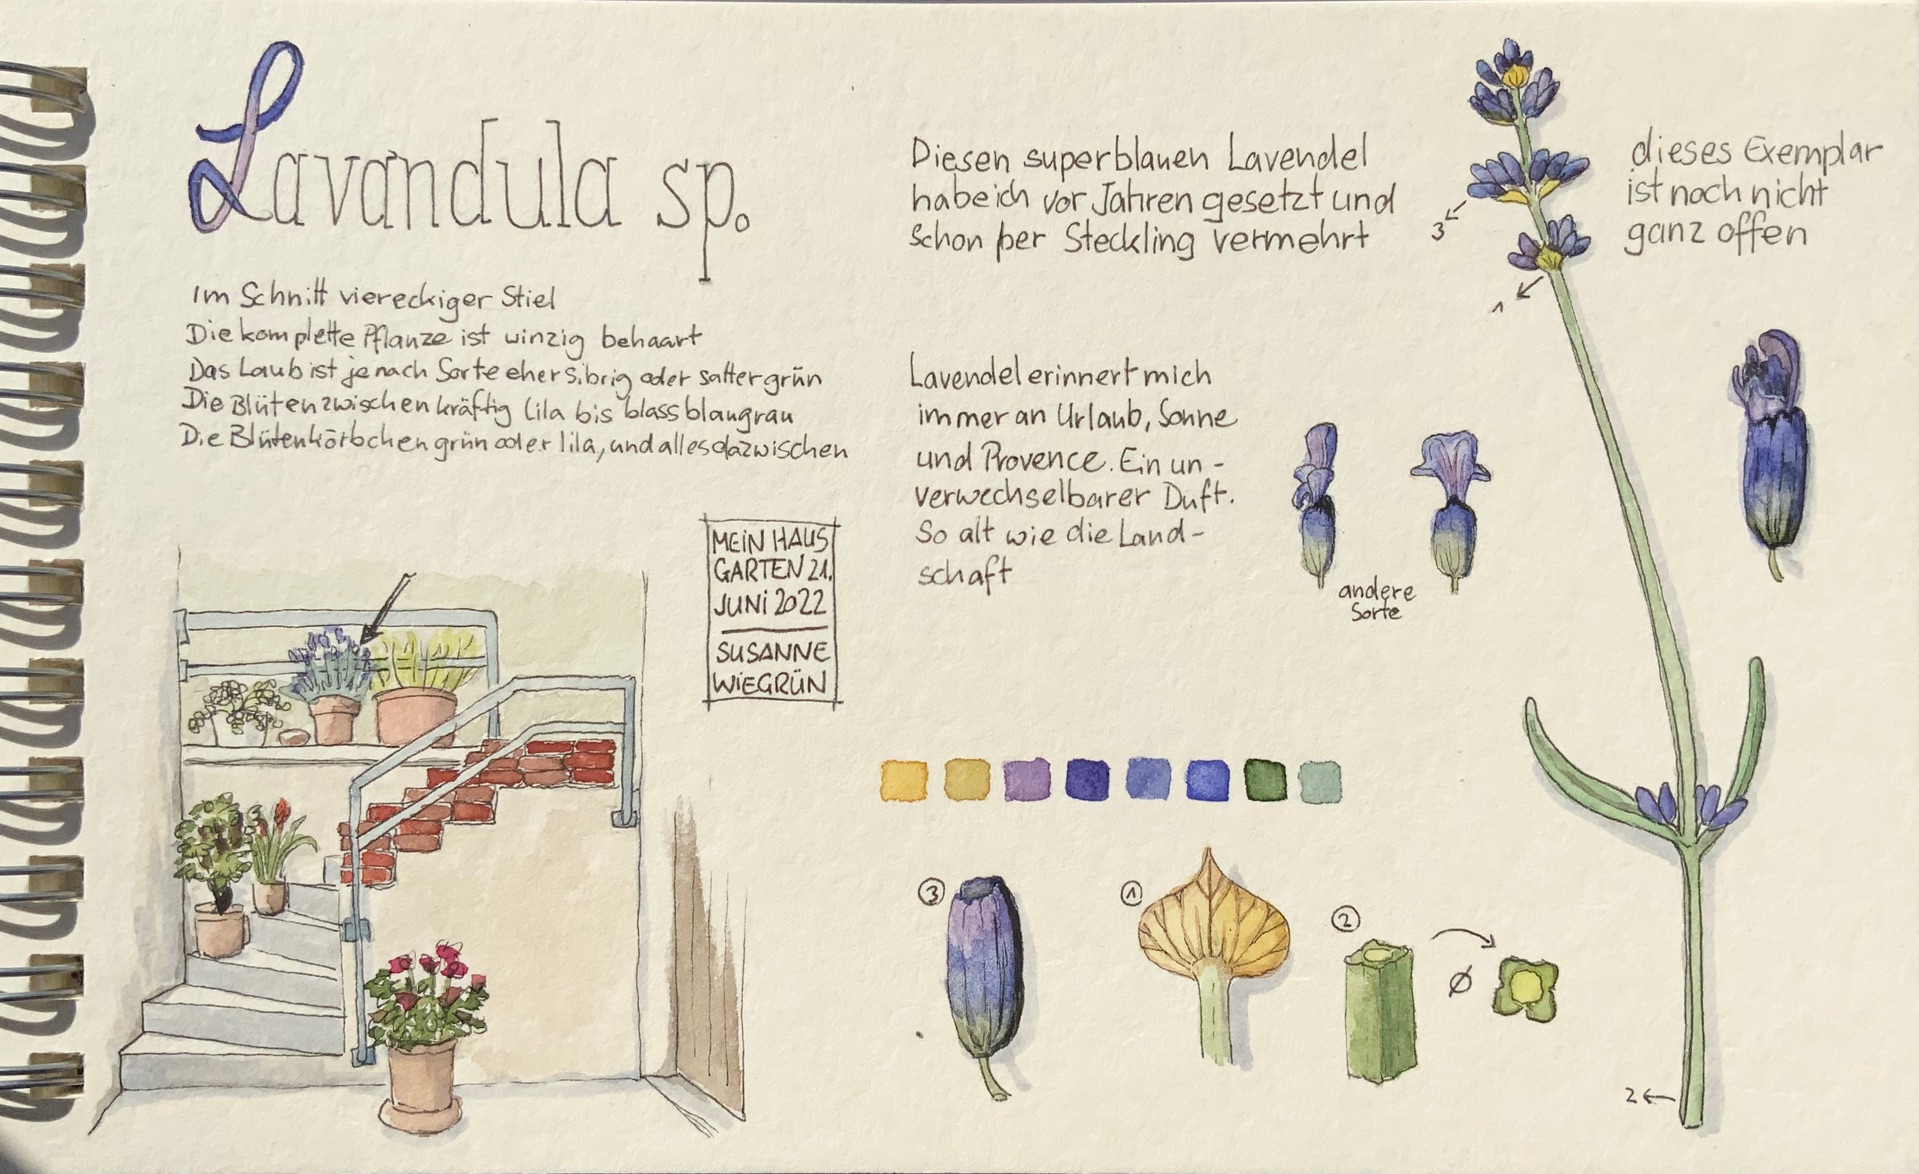 Lavandula sp.
Im Schnitt viereckiger Stiel
Die komplette Pflanze ist winzig behaart
Das Laub ist je nach Sorte eher sibrig oder satter grün
Die Blüten zwischen kräftig lila bis blass blaugrau
Die Blütenkörbchen grün oder lila, und alles dazwischen
MEIN HAUS
GARTEN 21.
JUNI 2022
SUSANNE
WIEGRÜN
Diesen superblauen Lavendel
habe ich vor Jahren gesetzt und
schon per Steckling vermehrt
Lavendel erinnert mich
immer an Urlaub, Sonne
und Provence. Ein un-
verwechselbarer Duft.
So alt wie die Land-
schaft
dieses Exemplar
ist noch nicht
ganz offen
3
1
andere
Sorte
3
1
2
Ø
2